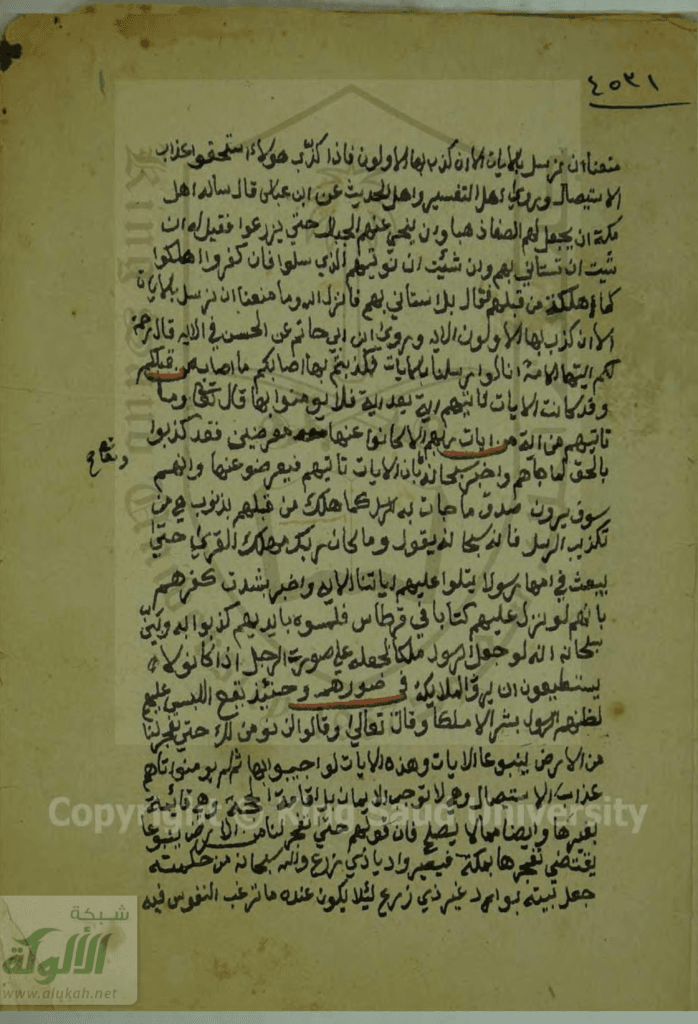 ٤٥٣١
منعنا ان نرسل بالايات الا ان كذب بها الاولون فاذا كذب هولاء استحقوا عذاب
الاستيصال وروي اهل التفسير واهل الحديث عن ابن عباس قال سال اهل
مكة ان يجعل لهم الصفا ذهبا وان ينحي عنهم الجبال حتي يزرعوا فقيل له ان
شيت ان تستاني بهم وان شئت ان نوتيهم الذي سلوا فان كفروا اهلكوا
كما اهلكت من قبلهم فقال بلا استاني بهم فانزل الله وما منعنا ان نرسل بالايات
الا ان كذب بها الاولون الايه وروي ابن ابي حاتم عن الحسن في الايه قال رحمة
لكم ايتها الامة انا لو ارسلنا بالايات فكذبتم بها اصابكم ما اصاب من قبلكم
وقد كانت الايات تاتيهم اية بعد اية فلا يومنوا بها قال تعالي وما
تاتيهم من اية من ايات ربهم الا كانوا عنها معرضين فقد كذبوا
بالحق لما جاهم واخبر سبحانه بان الايات تاتيهم فيعرضوا عنها وانهم
سوف يرون صدق ما جات به الرسل كما هلك من قبلهم بذنوب هي من
تكذيب الرسل فانه سبحانه يقول وما كان ربك مهلك القري حتي
يبعث في امها رسولا يتلوا عليهم اياتنا الايه واخبر بشدت كفرهم
بانهم لو نزل عليهم كتابا في قرطاس فلمسوه بايديهم كذبوا به وبين
سبحانه انه لو جعل الرسول ملكا لجعله علي صورت الرجل اذا كانوا لا
يستطيعون ان يروا الملايكة في صورهم وحينئذ يقع اللبس عليهم
لظنهم الرسول بشرا لا ملكا وقال تعالي وقالوا لن نومن لك حتي تفجر لنا
من الارض ينبوعا الايات وهذه الايات لو اجيبوا بها ثم لم يومنوا اتاهم
عذاب الاستيصال وهي لا توجب الايمان بل اقامة الحجة وهي قايمة
بغيرها وايضا مما لا يصلح فان قولهم حتي تفجر لنا من الارض ينبوعا
يقتضي تفجرها بمكة فيصير واديا ذي زرع والله سبحانه من حكمته
جعل بيته بواد غير ذي زرع ليلا يكون عنده ما ترغب النفوس فيه
Copyright © King Saud University
شبكة
الألوكة
www.alukah.net